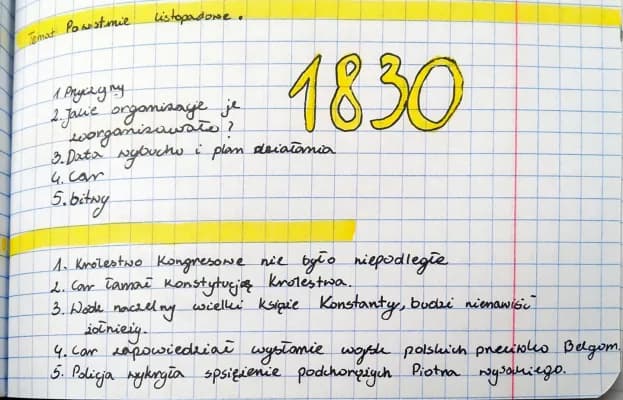 Temat: Powstanie listopadowe.
1830
1. Przyczyny
2. Jakie organizacje je
zorganizowało?
3. Data wybuchu i plan działania
4. Car
5. bitwy
1. Królestwo Kongresowe nie było niepodległe
2. Car łamał Konstytucję Królestwa.
3. Wódz naczelny wielki książe Konstanty, budzi nienawiść
żołnieży.
4. Car zapowiedział wysłanie wojsk polskich przeciwko Belgom.
5. Policja wykryła spsiężenie podchorążych Piotra Wysockiego.